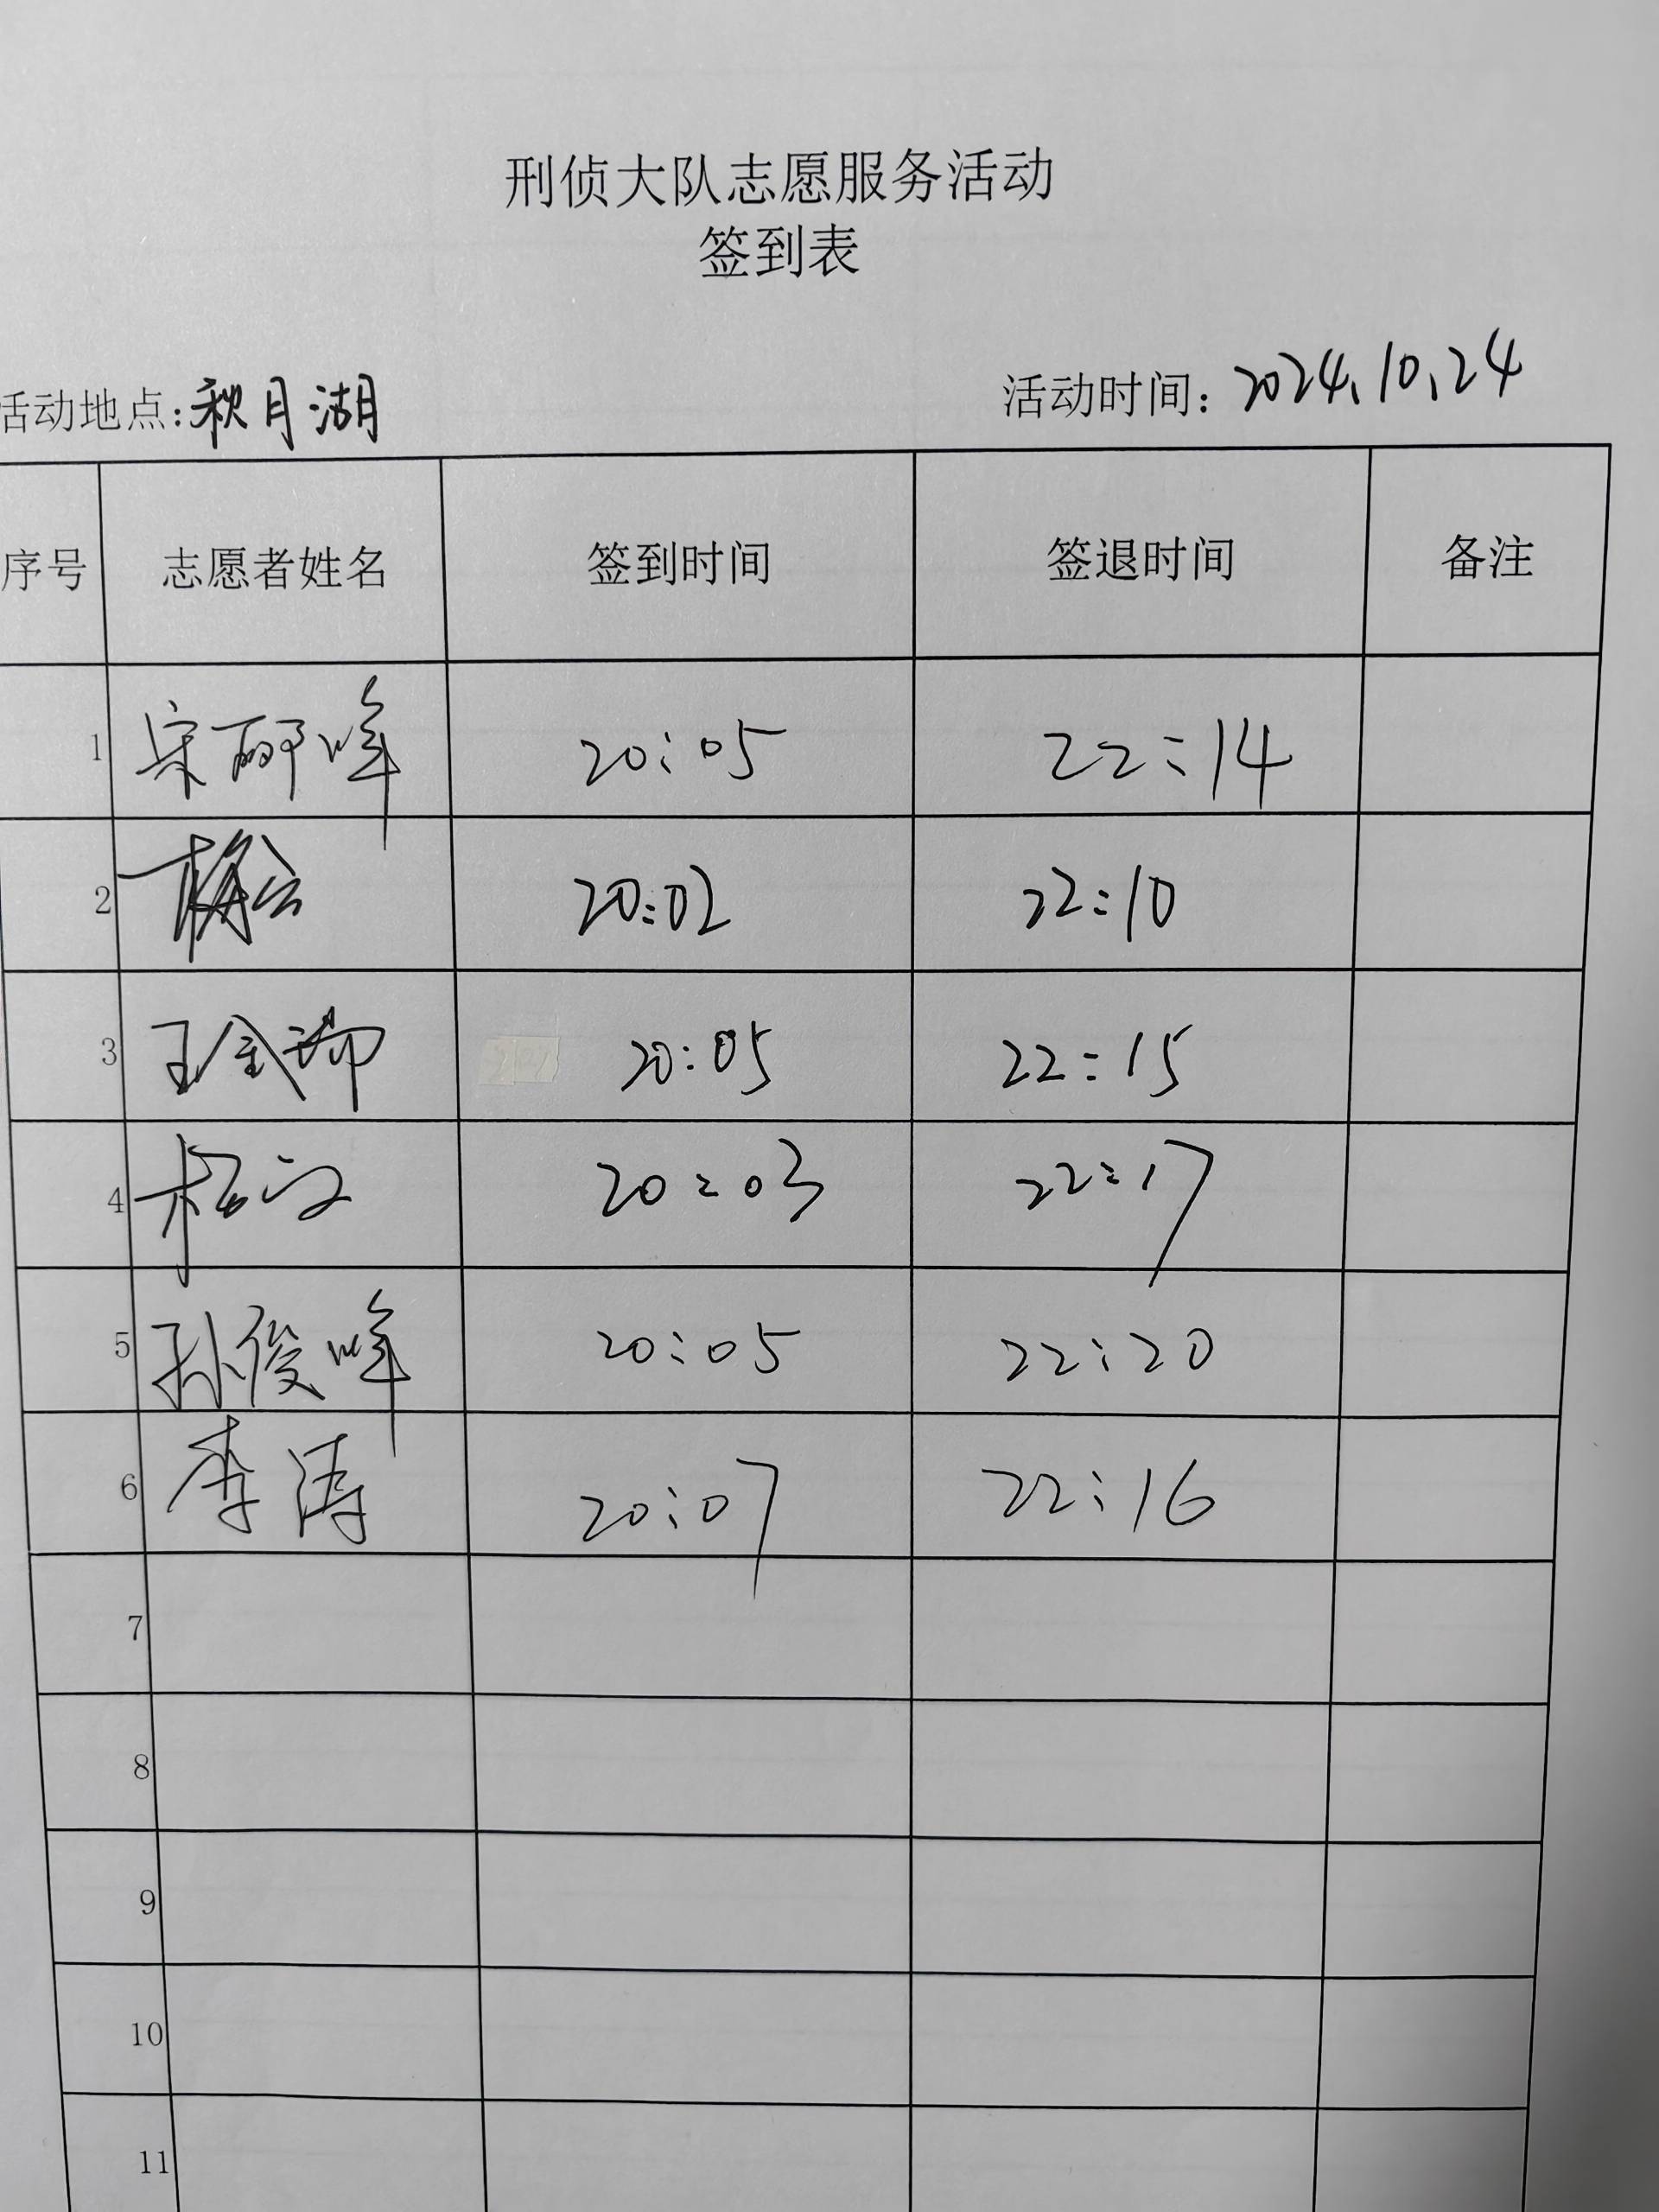 刑侦大队志愿服务活动
签到表
活动地点:秋月湖 活动时间: 2024.10.24
序号 志愿者姓名 签到时间 签退时间 备注
1 宋 20:05 22:14
2 20:02 22:10
3 王金瑞 20:05 22:15
4 20:03 22:17
5 孙俊峰 20:05 22:20
6 李涛 20:07 22:16
7
8
9
10
11